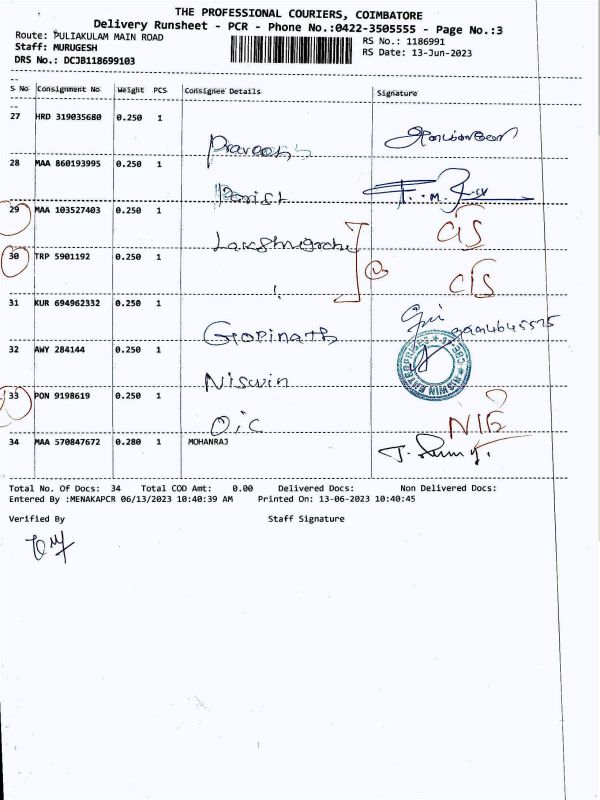 THE PROFESSIONAL COURIERS, COIMBATORE
Delivery Runsheet - PCR - Phone No.:0422-3505555 - Page No.:3
Route: PULIAKULAM MAIN ROAD
RS No.: 1186991
Staff: MURUGESH
RS Date: 13-Jun-2023
DRS No.: DCJB118699103
S No Consignment No Weight PCS Consignee Details Signature
27 HRD 319035680 0.250 1
28 MAA 860193995 0.250 1
29 MAA 103527403 0.250 1 C/S
30 TRP 5901192 0.250 1 C/S
31 KUR 694962332 0.250 1 Gopinath
32 AWY 284144 0.250 1 Niswin
NISWIN ENTERPRISES
33 PON 9198619 0.250 1 OIC
34 MAA 570847672 0.280 1 MOHANRAJ
Total No. Of Docs: 34 Total COD Amt: 0.00 Delivered Docs: Non Delivered Docs:
Entered By :MENAKAPCR 06/13/2023 10:40:39 AM Printed On: 13-06-2023 10:40:45
Verified By Staff Signature